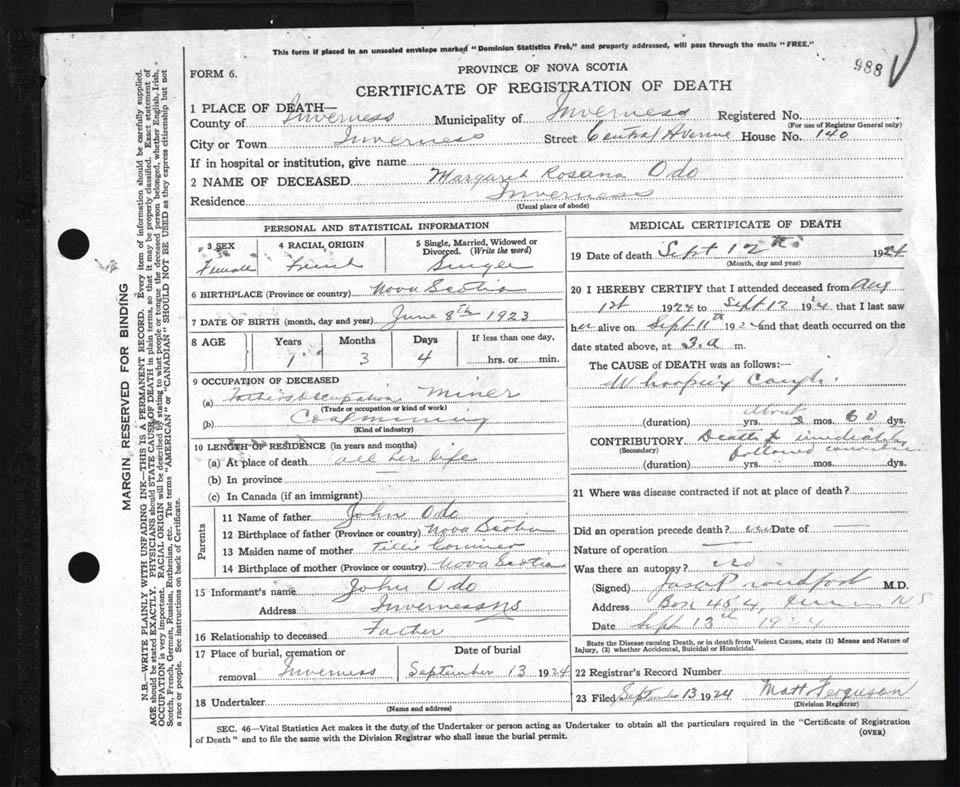 This form if placed in an unsealed envelope marked "Dominion Statistics Free," and properly addressed, will pass through the mails "FREE."
988
FORM 6.
PROVINCE OF NOVA SCOTIA
CERTIFICATE OF REGISTRATION OF DEATH
1 PLACE OF DEATH—
County of Inverness Municipality of Inverness Registered No.
(For use of Registrar General only)
City or Town Inverness Street Central Avenue House No. 140
If in hospital or institution, give name
2 NAME OF DECEASED Margaret Rosana Odo
Residence Inverness
(Usual place of abode)
PERSONAL AND STATISTICAL INFORMATION
3 SEX 4 RACIAL ORIGIN 5 Single, Married, Widowed or Divorced. (Write the word)
Female Single
6 BIRTHPLACE (Province or country) Nova Scotia
7 DATE OF BIRTH (month, day and year) June 8th 1923
8 AGE Years Months Days If less than one day,
1 3 4 hrs. or min.
9 OCCUPATION OF DECEASED
(a) Fathers Occupation Miner
(Trade or occupation or kind of work)
(b) Coal mining
(Kind of industry)
10 LENGTH OF RESIDENCE (in years and months)
(a) At place of death all her life
(b) In province —
(c) In Canada (if an immigrant)
Parents
11 Name of father John Odo
12 Birthplace of father (Province or country) Nova Scotia
13 Maiden name of mother Tillie
14 Birthplace of mother (Province or country) Nova Scotia
15 Informant's name John Odo
Address Inverness NS
16 Relationship to deceased Father
17 Place of burial, cremation or removal Inverness
Date of burial
September 13 1924
18 Undertaker
(Name and address)
MEDICAL CERTIFICATE OF DEATH
19 Date of death Sept 12th 1924
(Month, day and year)
20 I HEREBY CERTIFY that I attended deceased from Aug
1st 1924 to Sept 12 1924 that I last saw
her alive on Sept 11th 1924 and that death occurred on
date stated above, at 3 a m.
The CAUSE OF DEATH was as follows:—
Whooping Cough
about
(duration) yrs. mos. 60 dys.
CONTRIBUTORY. Death immediately
(Secondary) followed
(duration) yrs. mos. dys.
21 Where was disease contracted if not at place of death?
Did an operation precede death? Date of —
Nature of operation —
Was there an autopsy? No
(Signed) M.D.
Address Box 454, N S
Date Sept 13th 1924
State the Disease causing Death, or in death from Violent Causes, state (1) Means and Nature of
Injury, (2) whether Accidental, Suicidal or Homicidal.
22 Registrar's Record Number
23 Filed September 13 1924 Matt Ferguson
(Division Registrar)
SEC. 46—Vital Statistics Act makes it the duty of the Undertaker or person acting as Undertaker to obtain all the particulars required in the "Certificate of Registration
of Death" and to file the same with the Division Registrar who shall issue the burial permit.
(OVER)
MARGIN RESERVED FOR BINDING
N.B.—WRITE PLAINLY WITH UNFADING INK—THIS IS A PERMANENT RECORD. Every item of information should be carefully supplied.
AGE should be stated EXACTLY. PHYSICIANS should STATE CAUSE OF DEATH in plain terms, so that it may be properly classified. Exact statement of
OCCUPATION is very important. RACIAL ORIGIN will be described by stating to what people or tongue the deceased person belonged, whether English, Irish,
Scotch, French, German, Russian, Ruthenian, etc. The terms "AMERICAN" or "CANADIAN" SHOULD NOT BE USED as they express citizenship but not
a race or people. See instructions on back of Certificate.